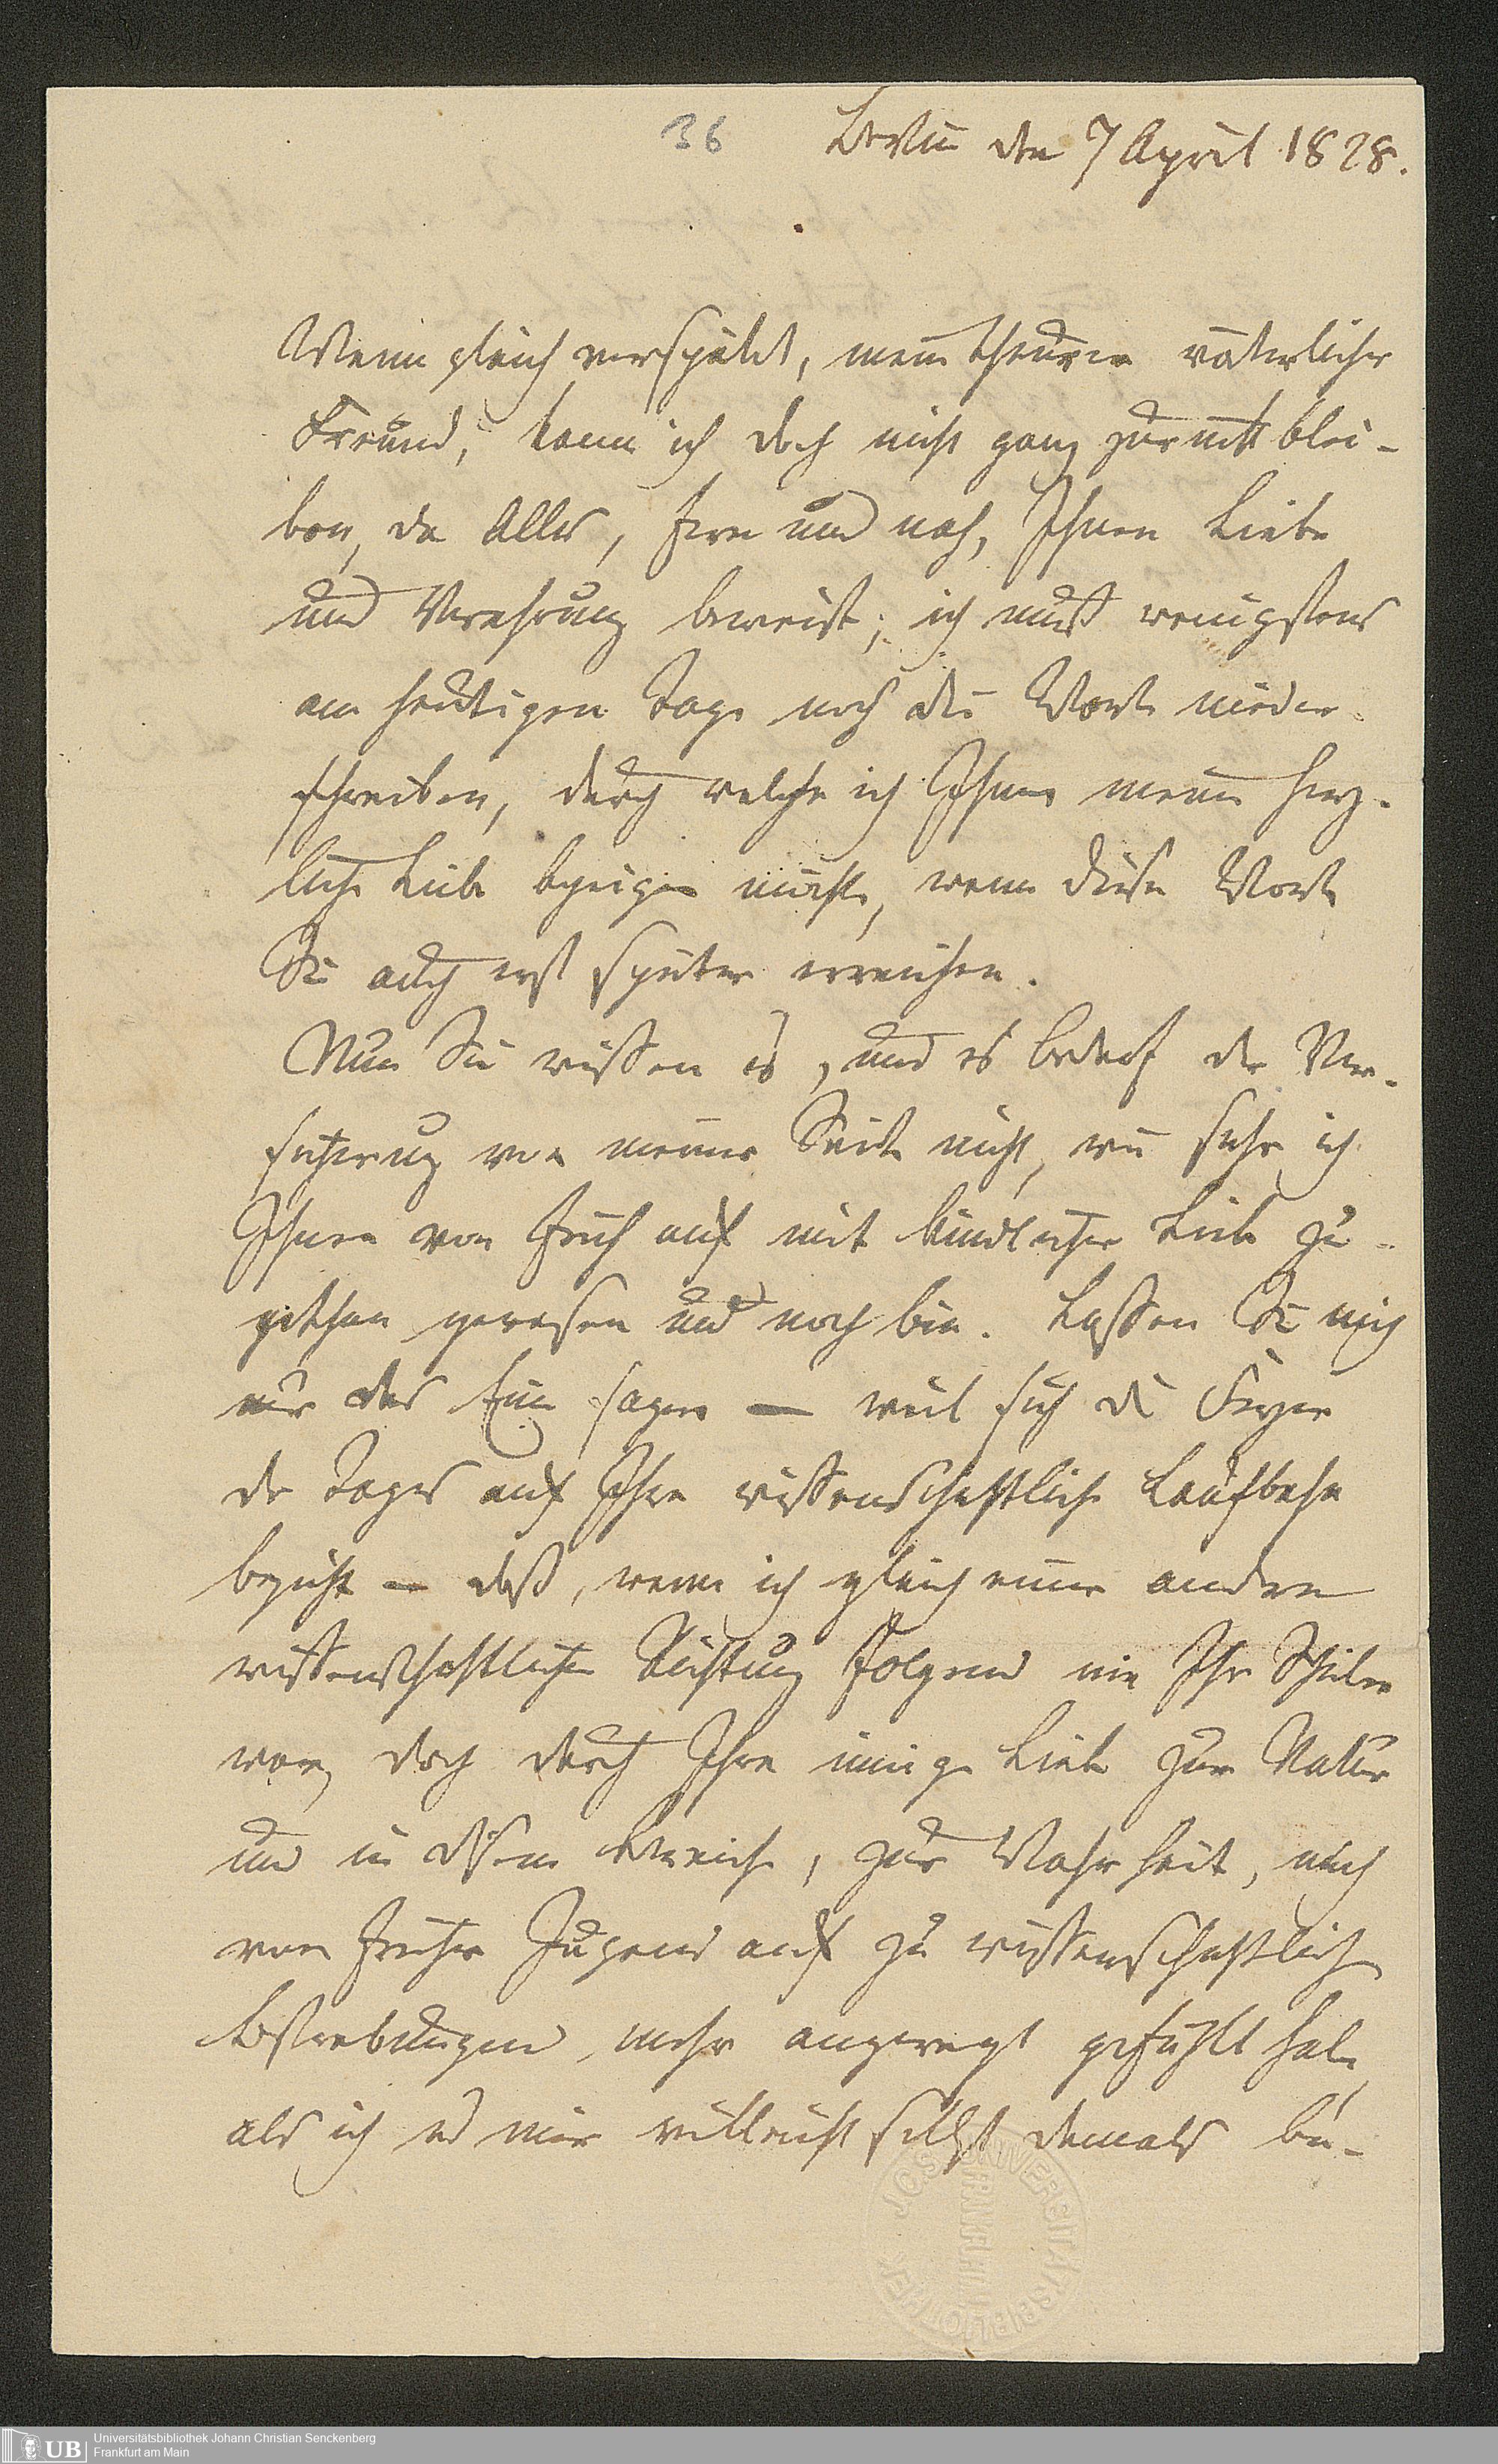 36
Berlin den 7 April 1828.
Wenn gleich verspätet, mein theurer väterlicher
Freund, kann ich doch nicht ganz zurück blei-
ben, da Alles, fern und nah, Ihnen Liebe
und Verehrung beweist; ich muß wenigstens
am heutigen Tage noch die Worte nieder
schreiben, durch welche ich Ihnen meine herz-
liche Liebe bezeigen möchte, wenn diese Worte
Sie auch erst später erreichen.
Nun Sie wissen es, und es bedarf der Ver-
sicherung von meiner Seite nicht, wie sehr ich
Ihnen von früh auf mit kindlicher Liebe zu-
gethan gewesen und noch bin. Lassen Sie mich
nur das Eine sagen — weil sich die Feyer
des Tages auf Ihre wissenschaftliche Laufbahn
bezieht — daß, wenn ich gleich einer andern
wissenschaftlichen Richtung folgend nie Ihr Schüler
war, doch durch Ihre innige Liebe zur Natur
und in diesem Bereiche, zur Wahrheit, mich
von früher Jugend auf zu wissenschaftlichen
Bestrebungen mehr angeregt gefühlt habe
als ich es mir vielleicht selbst damals be-
UNIVERSITÄTSBIBLIOTHEK
FRANKFURT
UB
Universitätsbibliothek Johann Christian Senckenberg
Frankfurt am Main